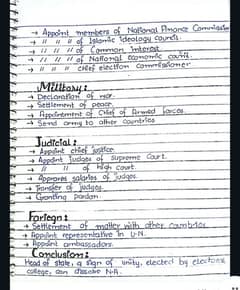 → Appoint members of National Finance Commission
→ " " " of Islamic Ideology Council.
→ " " " of Common interest
→ " " " of National economic council.
→ " " " chief election commissioner
Military:
→ Declaration of war.
→ Settlement of peace.
→ Appointment of Chief of Armed forces.
→ Send army to other countries
Judicial:
→ Appoint chief justice.
→ Appoint Judges of Supreme Court.
→ " " of high court.
→ Approves salaries of judges.
→ Transfer of judges.
→ Granting pardon.
Foriegn:
→ Settlement of matter with other countries.
→ Appoint representative in U.N.
→ Appoint ambassadors.
Conclusion:
Head of state, a sign of unity, elected by electoral
college, can dissolve N.A.